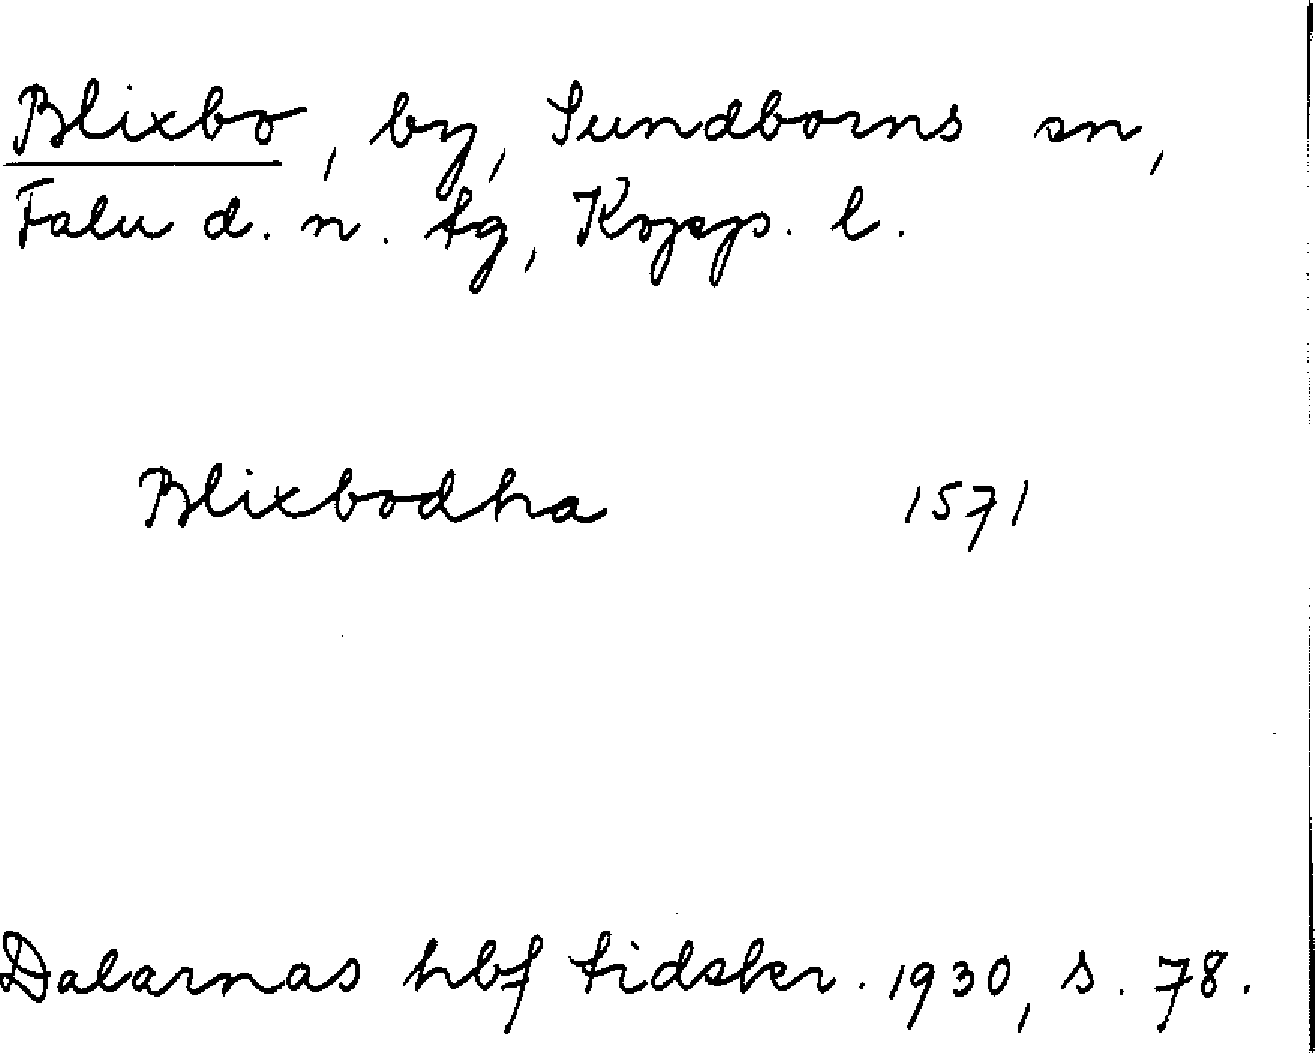 Blixbo, by, Sundborns sn,
Falu d. n. tg, Kopp. l.
Blixbodha 1571
Dalarnas hbf tidskr. 1930, s. 78.